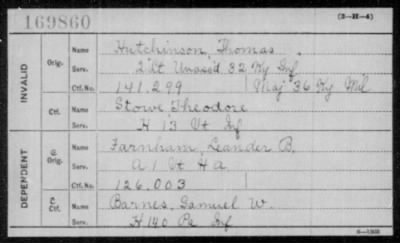 169860
(3-H-4)
INVALID
Orig.
Name Hutchinson, Thomas
Serv. 2' Lt Unass'd 32 Ky Inf
Ctf. No. 141.299 Maj 36 Ky Mil
Ctf.
Name Stowe Theodore
Serv. H 13 Vt Inf
DEPENDENT
O. Orig.
Name Farnham, Leander B.
Serv. A 1 Vt H A
Ctf. No. 126.003
C. Ctf.
Name Barnes, Samuel W.
Serv. H 140 Pa Inf